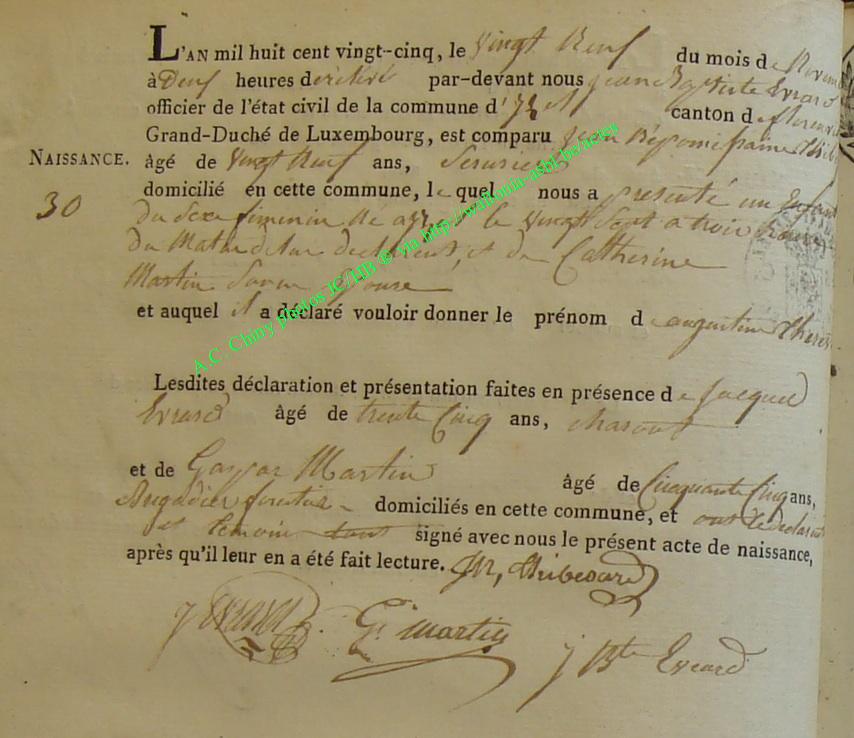 L'AN mil huit cent vingt-cinq, le vingt neuf du mois de
à neuf heures par-devant nous jean Baptiste Evrard
officier de l'état civil de la commune d' canton de
Grand-Duché de Luxembourg, est comparu jean
NAISSANCE. âgé de vingt neuf ans, Serurier
30 domicilié en cette commune, le quel nous a presenté un Enfant
du Sexe feminin Né a le vingt Sept a trois
du Matin de lui declarent, et de Catherine
Martin Son
et auquel il a déclaré vouloir donner le prénom de augustine
Lesdites déclaration et présentation faites en présence de Jacques
Evrard âgé de trente Cinq ans,
et de Gaspar Martin âgé de Cinquante Cinq ans,
Brigadier forestier domiciliés en cette commune, et ont
et temoin signé avec nous le présent acte de naissance,
après qu'il leur en a été fait lecture. JN, thibesard
J Evrard G. martin
j Bte Evrard
A.C. Chiny photos JC/HB ® via http://wallonia-asbl.be/actes